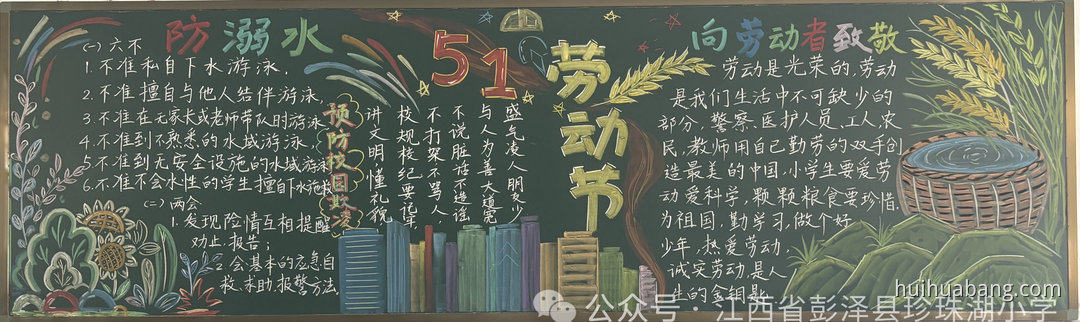 防溺水
(一)六不
1.不准私自下水游泳，
2.不准擅自与他人结伴游泳，
3.不准在无家长或老师带队的游泳
4.不准到不熟悉的水域游泳，
5.不准到无安全设施的水域游泳
6.不准不会水性的学生擅自下水施救
(二)两会
1.发现险情互相提醒
劝止，报告；
2.会基本的应急自
救、求助、报警方法。
预防校园欺凌
讲文明懂礼貌
校规校纪要记牢
不打架不骂人
不说脏话不造谣
与人为善大道宽
盛气凌人朋友少
51
劳动节
向劳动者致敬
劳动是光荣的，劳动
是我们生活中不可缺少的
部分，警察、医护人员、工人农
民，教师用自己勤劳的双手创
造最美的中国，小学生要爱劳
动爱科学，颗颗粮食要珍惜。
为祖国，勤学习，做个好
少年，热爱劳动，
诚实劳动，是人
生的金钥匙
huihuabang.com
公众号·江西省彭泽县珍珠湖小学